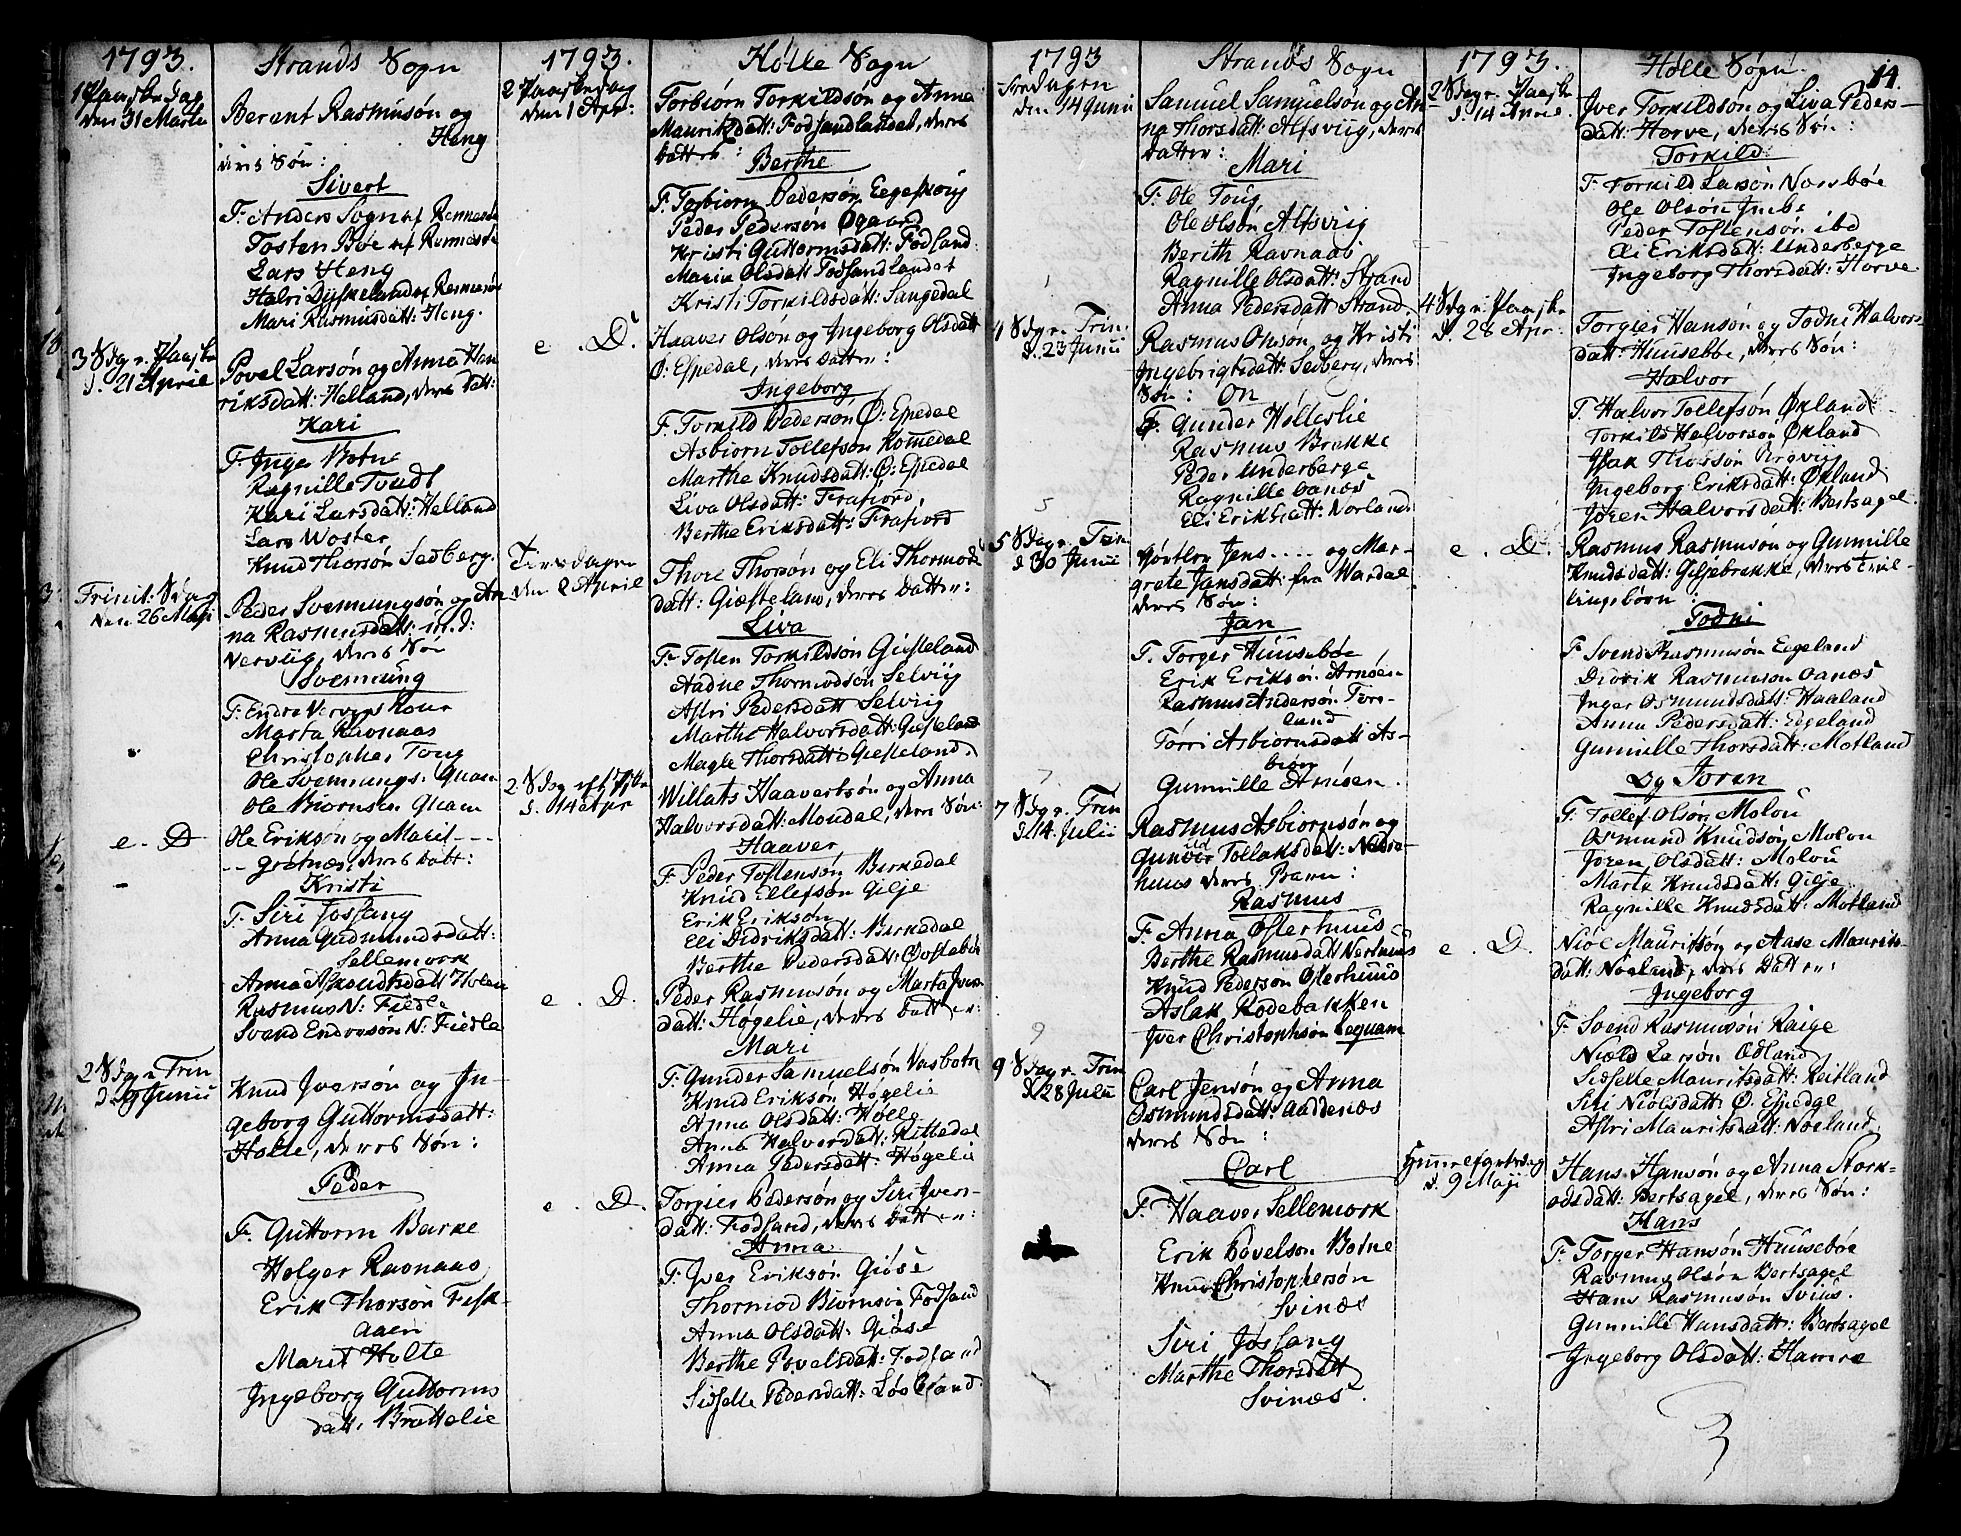 1793.
Strands Sogn
1 Paaske Dag
den 31 Marti
Berent Rasmusøn og
Heng
deres Søn:
Sivert
F. Anders Sogn af Rennesøe
Tosten Bøe af Rennesøe
Lars Heng
Mari Rasmusdatt: Heng.
3 Sdag n. Paaske
d. 21 April
Povel Larsøn og Anna Hen
riksdatt: Helland, deres datt:
Kari
F. Inge Botne
Ragnille Toudt
Kari Larsdatt: Helland
Lars Woster
Knud Thorsøn Sedberg.
Trinit: Sdag
den 26 Maji
Peder Svennungsøn og An
na Rasmusdatt:
Nerviig, deres Søn
Svennung
F. Endre
Marta Ravnaas
Christopher Toug
Ole Svennungs: Quam
Ole Biørnsen Quam
e. D
Ole Eriksøn og Marit - -
- - Grøtnæs, deres datt:
Kristi
F. Siri Jossang
Anna Gudmundsdatt:
Sellemork
Anna Asmundsdatt Holen
Rasmus N: Fiedle
Svend Endresøn N: Fiedle
2 Sdag n Trin
d. 9 Junii
Knud Iversøn og In-
geborg Guttormsdatt:
Holte, deres Søn:
Peder
F. Guttorm Barke
Holger Ravnaas
Erik Thorsøn Fisk-
aaen
Marit Holte
Ingeborg Guttorms
datt: Brattelie
1793.
Hølle Sogn
2 Paaskedag
den 1 Apr:
Torbiørn Torkildsøn og Anna
Mauritzdatt: Fodsandlandet, deres
datter:
Berthe
F. Torbiørn Pedersøn Eegeskoug
Peder Pedersøn Øgaard
Kristi Guttormsdatt: Fodland.
Maria Olsdatt Fodsandlandet
Kristi Torkildsdatt: Sangedal
e. D.
Haaver Olsøn og Ingeborg Olsdatt
Ø: Espedal, deres datter:
Ingeborg
F. Torkild Pedersøn Ø: Espedal
Asbiørn Tollefsøn Komedal
Marthe Knudsdatt: Ø: Espedal
Liva Olsdatt: Frafiord,
Berthe Eriksdatt: Frafiord
Tirsdagen
den 2 April
Thore Thorsøn og Eli Thormods
datt: Giesteland, deres datter:
Liva
F. Tosten Torkildsøn Giesteland
Aadne Thormodsøn Selviig
Astri Pedersdatt Selviig
Marthe Halvorsdatt: Giesteland
Magle Thorsdatt: Giesteland.
2 Sdag eft. Paaske
d. 14 Apr
Willats Haavertsøn og Anna
Halvorsdatt: Moudal, deres Søn:
Haaver
F. Peder Tostensøn Birkedal
Knud Ellefsøn Gilje
Erik Eriksøn
Eli Didriksdatt: Birkedal
Berthe Pedersdatt:
e. D.
Peder Rasmusøn og Marta Ivers
datt: Høgelie, deres datter:
Mari
F. Gunder Samuelsøn Vasbotn
Knud Eriksøn Høgelie
Anna Olsdatt: Hølle
Anna Halvordatt: Rittedal
Anna Pedersdatt: Høgelie
e. D.
Torgier Pedersøn og Siri Ivers-
datt: Fodsand, deres datter:
Anna
F. Iver Eriksøn Giøse
Thormod Biørnsøn Fodsand
Anna Olsdatt: Giøse
Berthe Povelsdatt: Fodsand
Sidselle Pedersdatt: Løeland.
1793
Strands Sogn
Fredagen
den 14 Junii
Samuel Samuelsøn og An
na Thorsdatt: Alfsviig, deres
datter:
Mari
F. Ole Toug
Ole Olsøn Alfsviig
Berith Ravnaas
Ragnille Olsdatt: Strand
Anna Pedersdatt Strand.
4 Sdag n. Trin.
d. 23 Junii
Rasmus Onsøn, og Kristi
Ingebrigtsdatt: Sedberg, deres
Søn: On
F. Gunder Hølleslie
Rasmus Brekke
Peder Underberge
Ragnille Oanæs
Eli Eriksdatt: Norland
5 Sdag n. Trin
d 30 Junii
Jens .... og Mar-
grete Jansdatt: fra Wardal
deres Søn:
Jan
F. Torger Huusebøe
Erik Eriksøn Arnøen
Rasmus Andersøn Tors-
land
Torri Asbiørnsdatt As-
Gunnille Arnøen.
7 Sdag n. Trin
d 14 Julii
Rasmus Asbiørnsøn og
Gunvor Tollaksdatt: Nedre-
huus deres Barn:
Rasmus
F. Anna Østerhuus
Berthe Rasmusdatt Nerhuus
Knud Pedersøn Østerhuus
Aslak Rodebakken
Iver Christophsøn Leqvam
9 Sdag n. Trin
d 28 Julii
Carl Jensøn og Anna
Osmundsdatt: Aadnæs
deres Søn:
Carl
F. Haaver Sellemork
Erik Povelsøn Botne
Knud Christophersøn
Svinæs
Siri Jøssang
Marthe Thorsdatt
Svinæs.
1793.
Hølle Sogn.
14.
2 Sdag n. Paaske
d. 14 April.
Iver Torkildsøn og Liva Peders-
datt: Horve, deres Søn:
Torkild
F. Torkild Larsøn Norebøe
Ole Olsøn Imbs
Peder Tostensøn ibd
Eli Eriksdatt: Underberge
Ingeborg Thorsdatt: Horve.
4 Sdag n. Paaske
d. 28 Apr:
Torgier Hansøn og Todni Halvors-
datt: Huusebøe, deres Søn:
Halvor
F. Halvor Tollefsøn Økland
Torkild Halvorsøn Økland
Isak Thorsøn
Ingeborg Eriksdatt: Økland
Jøren Halvorsdatt: Bertsagel.
e. D.
Rasmus Rasmusøn og Gunnille
Knudsdatt: Giljebrekke, deres tvil-
lingebørn:
Todni
F Svend Rasmusøn Eegeland
Didrik Rasmusøn Oanæs
Inger Osmundsdatt: Haaland
Anna Pedersdatt: Eegeland
Gunnille Thorsdatt: Motland
Og Joren
F. Tollef Olsøn Molou
Osmund Knudsøn Molou
Jøren Olsdatt: Molou
Marte Knudsdatt: Gilje
Ragnille Knudsdatt: Motland
e. D.
Niøl Mauritsøn og Aase Maurits-
datt: Nøeland, deres datter:
Ingeborg
F. Svend Rasmusøn Raige
Niøld Larsøn Ødland
Sidselle Mauritsdatt: Reitland
Siri Niølsdatt: Ø. Espedal
Astri Mauritsdatt: Nøeland.
Himmelfartsdag
d. 9 Maji
Hans Hansøn og Anna Stork-
odsdatt: Bertsagel, deres Søn:
Hans
F. Torger Hansøn Huusebøe
Rasmus Olsøn Bertsagel
Hans Rasmusøn Sviius.
Gunnille Hansdatt: Bertsagel
Ingeborg Olsdatt: Hamre